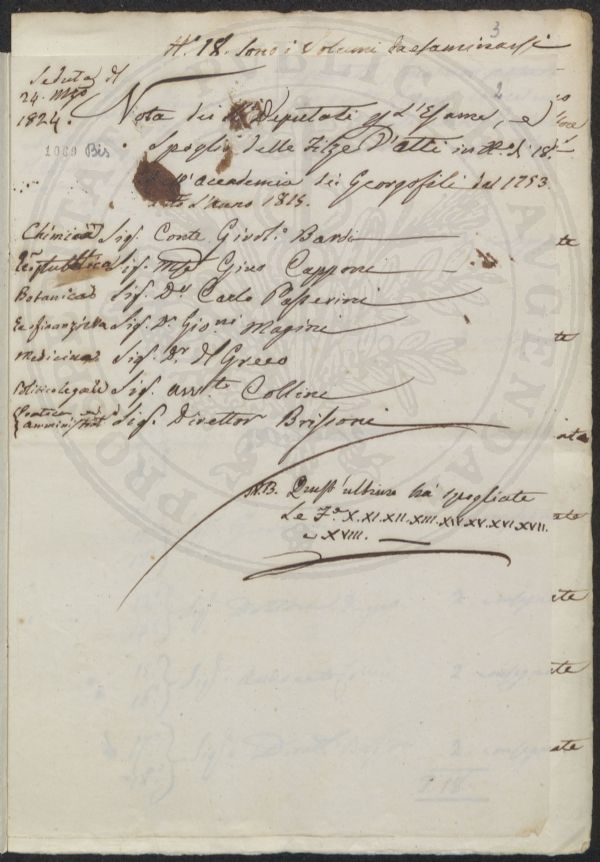 3
N.° 18. sono i Volumi da esaminarsi
Seduta del
24. Mzo
1824.
2
Nota dei Deputati p l'Esame, e
1080 Bis
Spoglio delle Filze d'Atti in N.° di 18.
Accademia dei Georgofili dal 1753
l'Anno 1815.
Chimica Sig. Conte Girol.° Bardi
Sig. Mse Gino Capponi
Botanica Sig. Dr. Carlo Passerini
Sig. Dr. Gioni Magini
Medicina Sig. Dr. del Greco
Politico legale Sig. Avv.to Collini
Pratica ed
amministrat. Sig. Direttor Brissoni
N.B. Quest'ultimo ha spogliate
Le Fe X. XI. XII. XIII. XIV. XV. XVI. XVII.
e XVIII.
PUBLICAE
AUGENDAE
PROSPERITATI